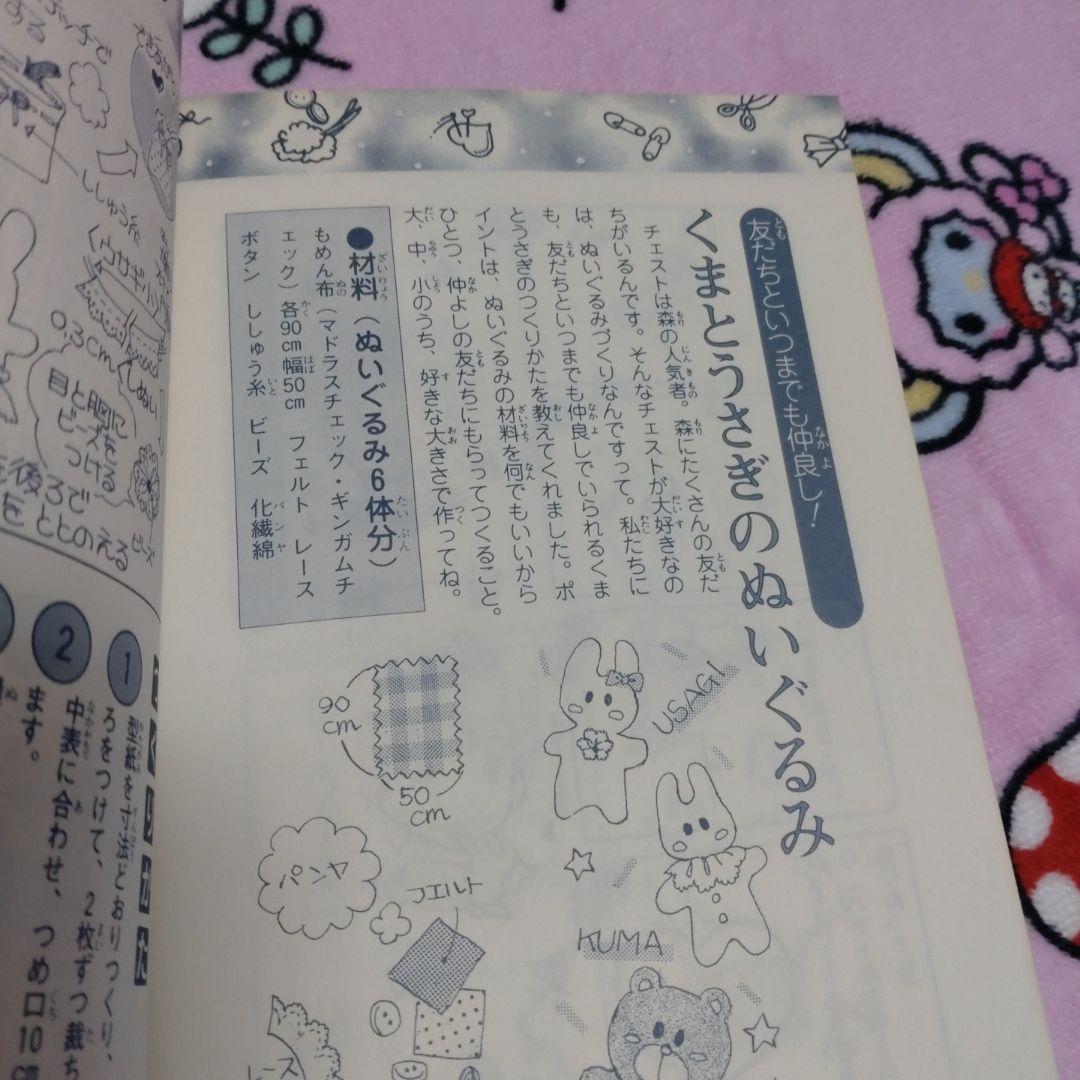 友だちといつまでも仲良し!
くまとうさぎのぬいぐるみ
チェストは森の人気者。森にたくさんの友だ
ちがいるんです。そんなチェストが大好きなの
は、ぬいぐるみづくりなんですって。私たちに
も、友だちといつまでも仲良しでいられるくま
とうさぎのつくりかたを教えてくれました。ポ
イントは、ぬいぐるみの材料を何でもいいから
ひとつ、仲よしの友だちにもらってつくること。
大、中、小のうち、好きな大きさで作ってね。
●材料(ぬいぐるみ6体分)
もめん布(マドラスチェック・ギンガムチ
ェック)各90cm幅50cm フェルト レース
ボタン ししゅう糸 ビーズ 化繊綿
USAGI
90
cm
50
cm
パンヤ
フエルト
KUMA
レース
ししゅう糸
0.3cm
目と胸に
ビーズを
つける
後ろで
ととのえる
つくりかた
1
型紙を寸法どおりつくり、
ろをつけて、2枚ずつ裁ち
2
中表に合わせ、つめ口10cm
ます。